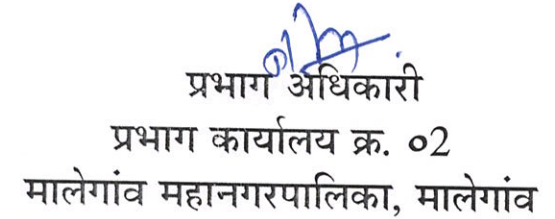 प्रभाग अधिकारी
प्रभाग कार्यालय क्र. ०2
मालेगांव महानगरपालिका, मालेगांव